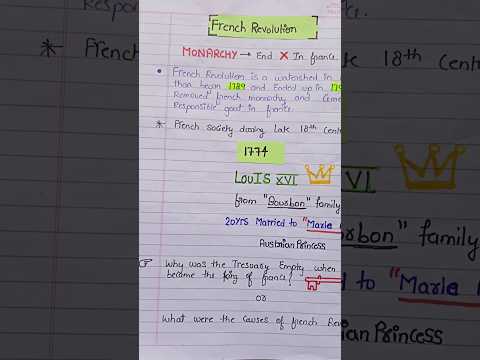 French Revolution
MONARCHY → End ✗ In france
• French Revolution is a watershed in
than began 1789 and Ended up in 179
Removed french monarchy and
Responsible govt in france.
* French society during Late 18th Cent
1774
LOUIS XVI
from "Bourbon" family
20yrs Married to "Marie
Austrian Princess
☞ Why was the Tresuary Empty when
become the king of france?
OR
What were the Causes of french Rev
* French
Late 18th Cent
XVI
rbon" family
Marie
ian Princess